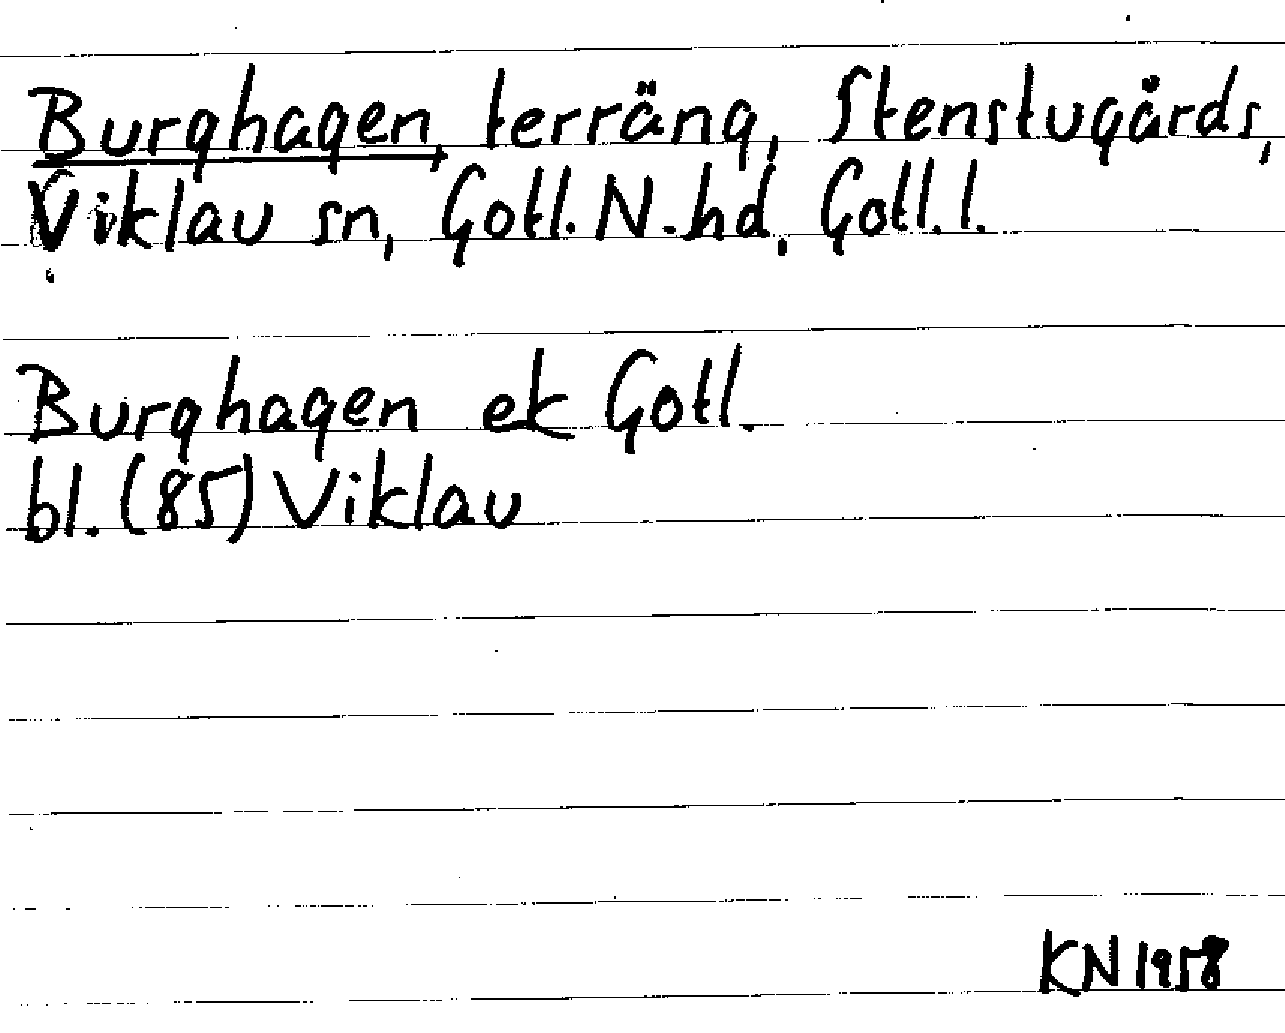 Burghagen, terräng, Stenstugårds,
Viklau sn, Gotl. N. hd, Gotl. l.
Burghagen ek Gotl.
bl. (85) Viklau
KN 1958